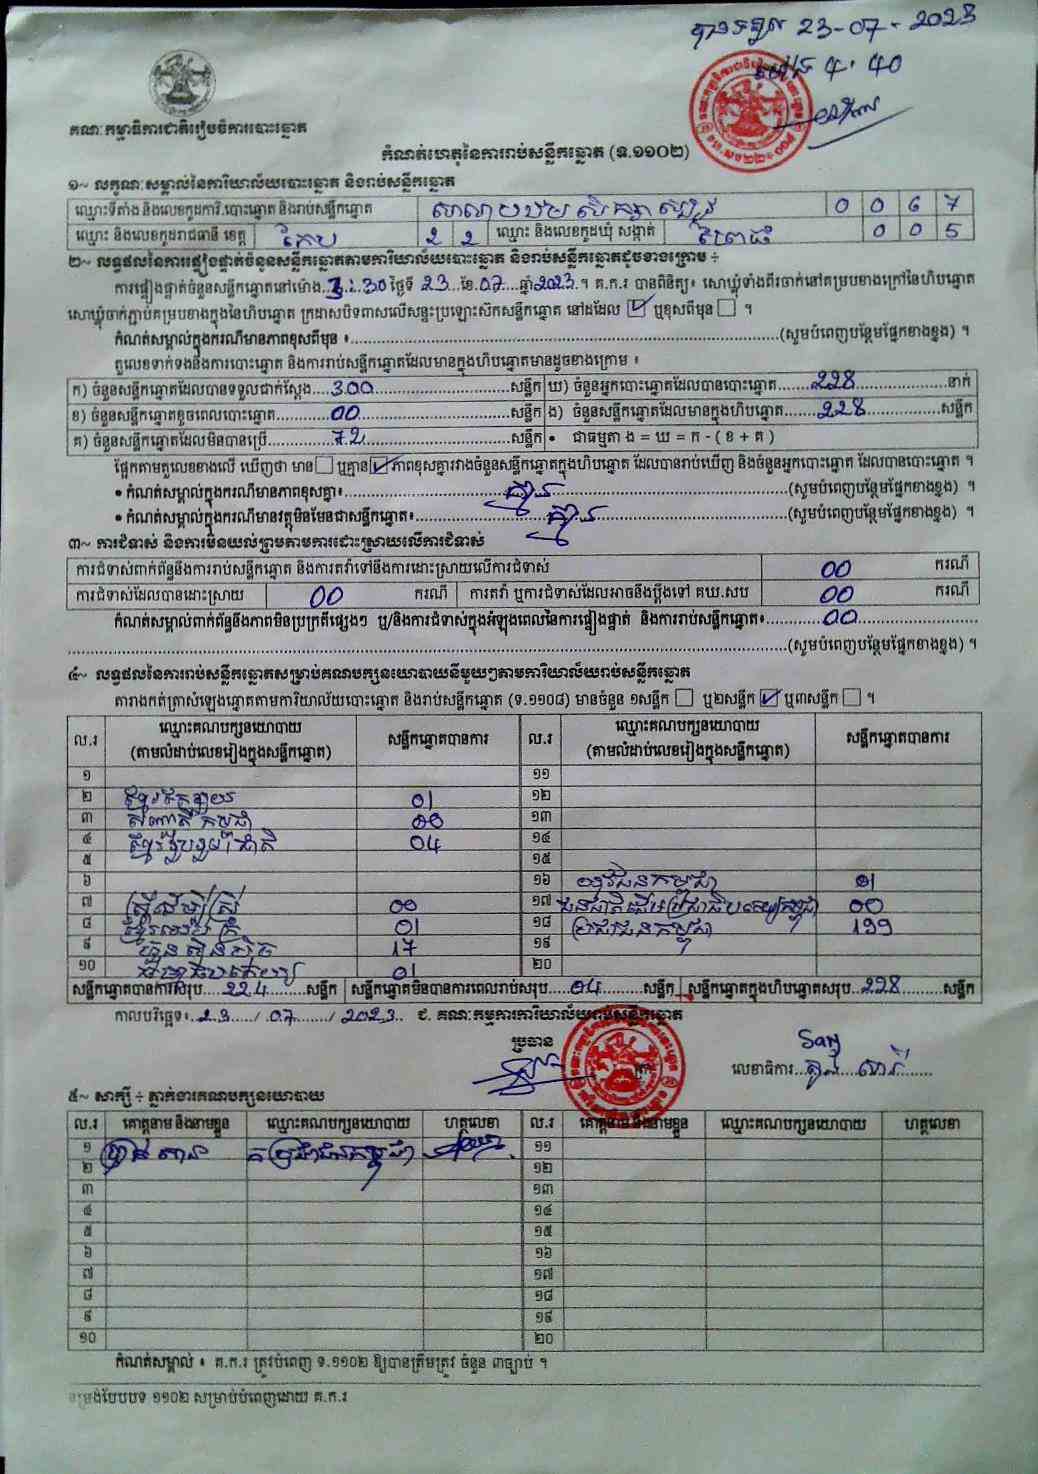 បានទទួល 23-07-2023
ម៉ោង 4:40
គណៈកម្មាធិការជាតិរៀបចំការបោះឆ្នោត
កំណត់ហេតុនៃការរាប់សន្លឹកឆ្នោត (ទ.១១០២)
១~ លក្ខណៈសម្គាល់នៃការិយាល័យបោះឆ្នោត និងរាប់សន្លឹកឆ្នោត
ឈ្មោះទីតាំង និងលេខកូដការិ.បោះឆ្នោត និងរាប់សន្លឹកឆ្នោត 0 0 6 7
ឈ្មោះ និងលេខកូដរាជធានី ខេត្ត កែប 2 2 ឈ្មោះ និងលេខកូដឃុំ សង្កាត់ ព្រៃធំ 0 0 5
២~ លទ្ធផលនៃការផ្ទៀងផ្ទាត់ចំនួនសន្លឹកឆ្នោតតាមការិយាល័យបោះឆ្នោត និងរាប់សន្លឹកឆ្នោតដូចខាងក្រោម ÷
ការផ្ទៀងផ្ទាត់ចំនួនសន្លឹកឆ្នោតនៅម៉ោង 3:30 ថ្ងៃទី 23 ខែ 07 ឆ្នាំ 2023 ។ គ.ក.រ បានពិនិត្យ៖ សោឃ្លុំទាំងពីរចាក់នៅគម្របខាងក្រៅនៃហិបឆ្នោត
សោឃ្លុំចាក់ភ្ជាប់គម្របខាងក្នុងនៃហិបឆ្នោត ក្រដាសបិទពាសលើសន្ទះប្រឡោះស៊កសន្លឹកឆ្នោត នៅដដែល ☑ ឬខុសពីមុន ☐ ។
កំណត់សម្គាល់ក្នុងករណីមានភាពខុសពីមុន ៖ (សូមបំពេញបន្ថែមផ្នែកខាងខ្នង) ។
តួលេខទាក់ទងនឹងការបោះឆ្នោត និងការរាប់សន្លឹកឆ្នោតដែលមានក្នុងហិបឆ្នោតមានដូចខាងក្រោម ៖
ក) ចំនួនសន្លឹកឆ្នោតដែលបានទទួលជាក់ស្តែង 300 សន្លឹក ឃ) ចំនួនអ្នកបោះឆ្នោតដែលបានបោះឆ្នោត 228 នាក់
ខ) ចំនួនសន្លឹកឆ្នោតខូចពេលបោះឆ្នោត 00 សន្លឹក ង) ចំនួនសន្លឹកឆ្នោតដែលមានក្នុងហិបឆ្នោត 228 សន្លឹក
គ) ចំនួនសន្លឹកឆ្នោតដែលមិនបានប្រើ 72 សន្លឹក • ជាធម្មតា ង = ឃ = ក - ( ខ + គ )
ផ្អែកតាមតួលេខខាងលើ ឃើញថា មាន ☐ ឬគ្មាន ☑ ភាពខុសគ្នារវាងចំនួនសន្លឹកឆ្នោតក្នុងហិបឆ្នោត ដែលបានរាប់ឃើញ និងចំនួនអ្នកបោះឆ្នោត ដែលបានបោះឆ្នោត ។
• កំណត់សម្គាល់ក្នុងករណីមានភាពខុសគ្នា៖ គ្មាន (សូមបំពេញបន្ថែមផ្នែកខាងខ្នង) ។
• កំណត់សម្គាល់ក្នុងករណីមានវត្ថុមិនមែនជាសន្លឹកឆ្នោត៖ គ្មាន (សូមបំពេញបន្ថែមផ្នែកខាងខ្នង) ។
៣~ ការជំទាស់ និងការមិនយល់ព្រមតាមការដោះស្រាយលើការជំទាស់
ការជំទាស់ពាក់ព័ន្ធនឹងការរាប់សន្លឹកឆ្នោត និងការតវ៉ាទៅនឹងការដោះស្រាយលើការជំទាស់ 00 ករណី
ការជំទាស់ដែលបានដោះស្រាយ 00 ករណី ការតវ៉ា ឬការជំទាស់ដែលអាចនឹងប្តឹងទៅ គឃ.សប 00 ករណី
កំណត់សម្គាល់ពាក់ព័ន្ធនឹងភាពមិនប្រក្រតីផ្សេងៗ ឬ/និងការជំទាស់ក្នុងអំឡុងពេលនៃការផ្ទៀងផ្ទាត់ និងការរាប់សន្លឹកឆ្នោត៖ 00
(សូមបំពេញបន្ថែមផ្នែកខាងខ្នង) ។
៤~ លទ្ធផលនៃការរាប់សន្លឹកឆ្នោតសម្រាប់គណបក្សនយោបាយនីមួយៗតាមការិយាល័យរាប់សន្លឹកឆ្នោត
តារាងកត់ត្រាសំឡេងឆ្នោតតាមការិយាល័យបោះឆ្នោត និងរាប់សន្លឹកឆ្នោត (ទ.១១០៨) មានចំនួន ១សន្លឹក ☐ ឬ២សន្លឹក ☑ ឬ៣សន្លឹក ☐ ។
ល.រ ឈ្មោះគណបក្សនយោបាយ (តាមលំដាប់លេខរៀងក្នុងសន្លឹកឆ្នោត) សន្លឹកឆ្នោតបានការ ល.រ ឈ្មោះគណបក្សនយោបាយ (តាមលំដាប់លេខរៀងក្នុងសន្លឹកឆ្នោត) សន្លឹកឆ្នោតបានការ
១ ១១
២ 01 ១២
៣ 00 ១៣
៤ ខ្មែររួបរួមជាតិ 04 ១៤
៥ ១៥
៦ ១៦ យុវជនកម្ពុជា 01
៧ ស្ត្រីដើម្បីស្ត្រី 00 ១៧ 00
៨ 01 ១៨ ប្រជាជនកម្ពុជា 199
៩ ហ៊្វុនស៊ិនប៉ិច 17 ១៩
១០ 01 ២០
សន្លឹកឆ្នោតបានការសរុប 224 សន្លឹក សន្លឹកឆ្នោតមិនបានការពេលរាប់សរុប 04 សន្លឹក សន្លឹកឆ្នោតក្នុងហិបឆ្នោតសរុប 228 សន្លឹក
កាលបរិច្ឆេទ៖ 23 / 07 / 2023 ជ. គណៈកម្មការការិយាល័យរាប់សន្លឹកឆ្នោត
ប្រធាន
លេខាធិការ
៥~ សាក្សី ÷ ភ្នាក់ងារគណបក្សនយោបាយ
ល.រ គោត្តនាម និងនាមខ្លួន ឈ្មោះគណបក្សនយោបាយ ហត្ថលេខា ល.រ គោត្តនាម និងនាមខ្លួន ឈ្មោះគណបក្សនយោបាយ ហត្ថលេខា
១ គ ប្រជាជនកម្ពុជា ១១
២ ១២
៣ ១៣
៤ ១៤
៥ ១៥
៦ ១៦
៧ ១៧
៨ ១៨
៩ ១៩
១០ ២០
កំណត់សម្គាល់ ៖ គ.ក.រ ត្រូវបំពេញ ទ.១១០២ ឱ្យបានត្រឹមត្រូវ ចំនួន ៣ច្បាប់ ។
ទម្រង់បែបបទ ១១០២ សម្រាប់បំពេញដោយ គ.ក.រ